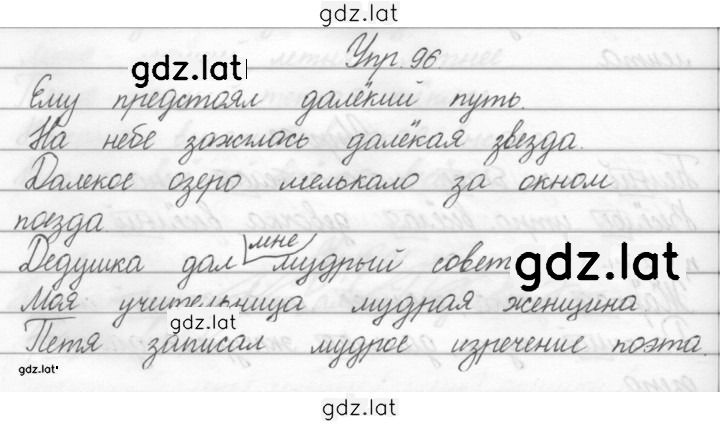 gdz.lat
Упр. 96.
gdz.lat
Ему предстоял далёкий путь.
На небе зажглась далёкая звезда.
Далекое озеро мелькало за окном
поезда
Дедушка дал мне мудрый совет
gdz.lat
Моя учительница мудрая женщина
gdz.lat
Петя записал мудрое изречение поэта.
gdz.lat
gdz.lat